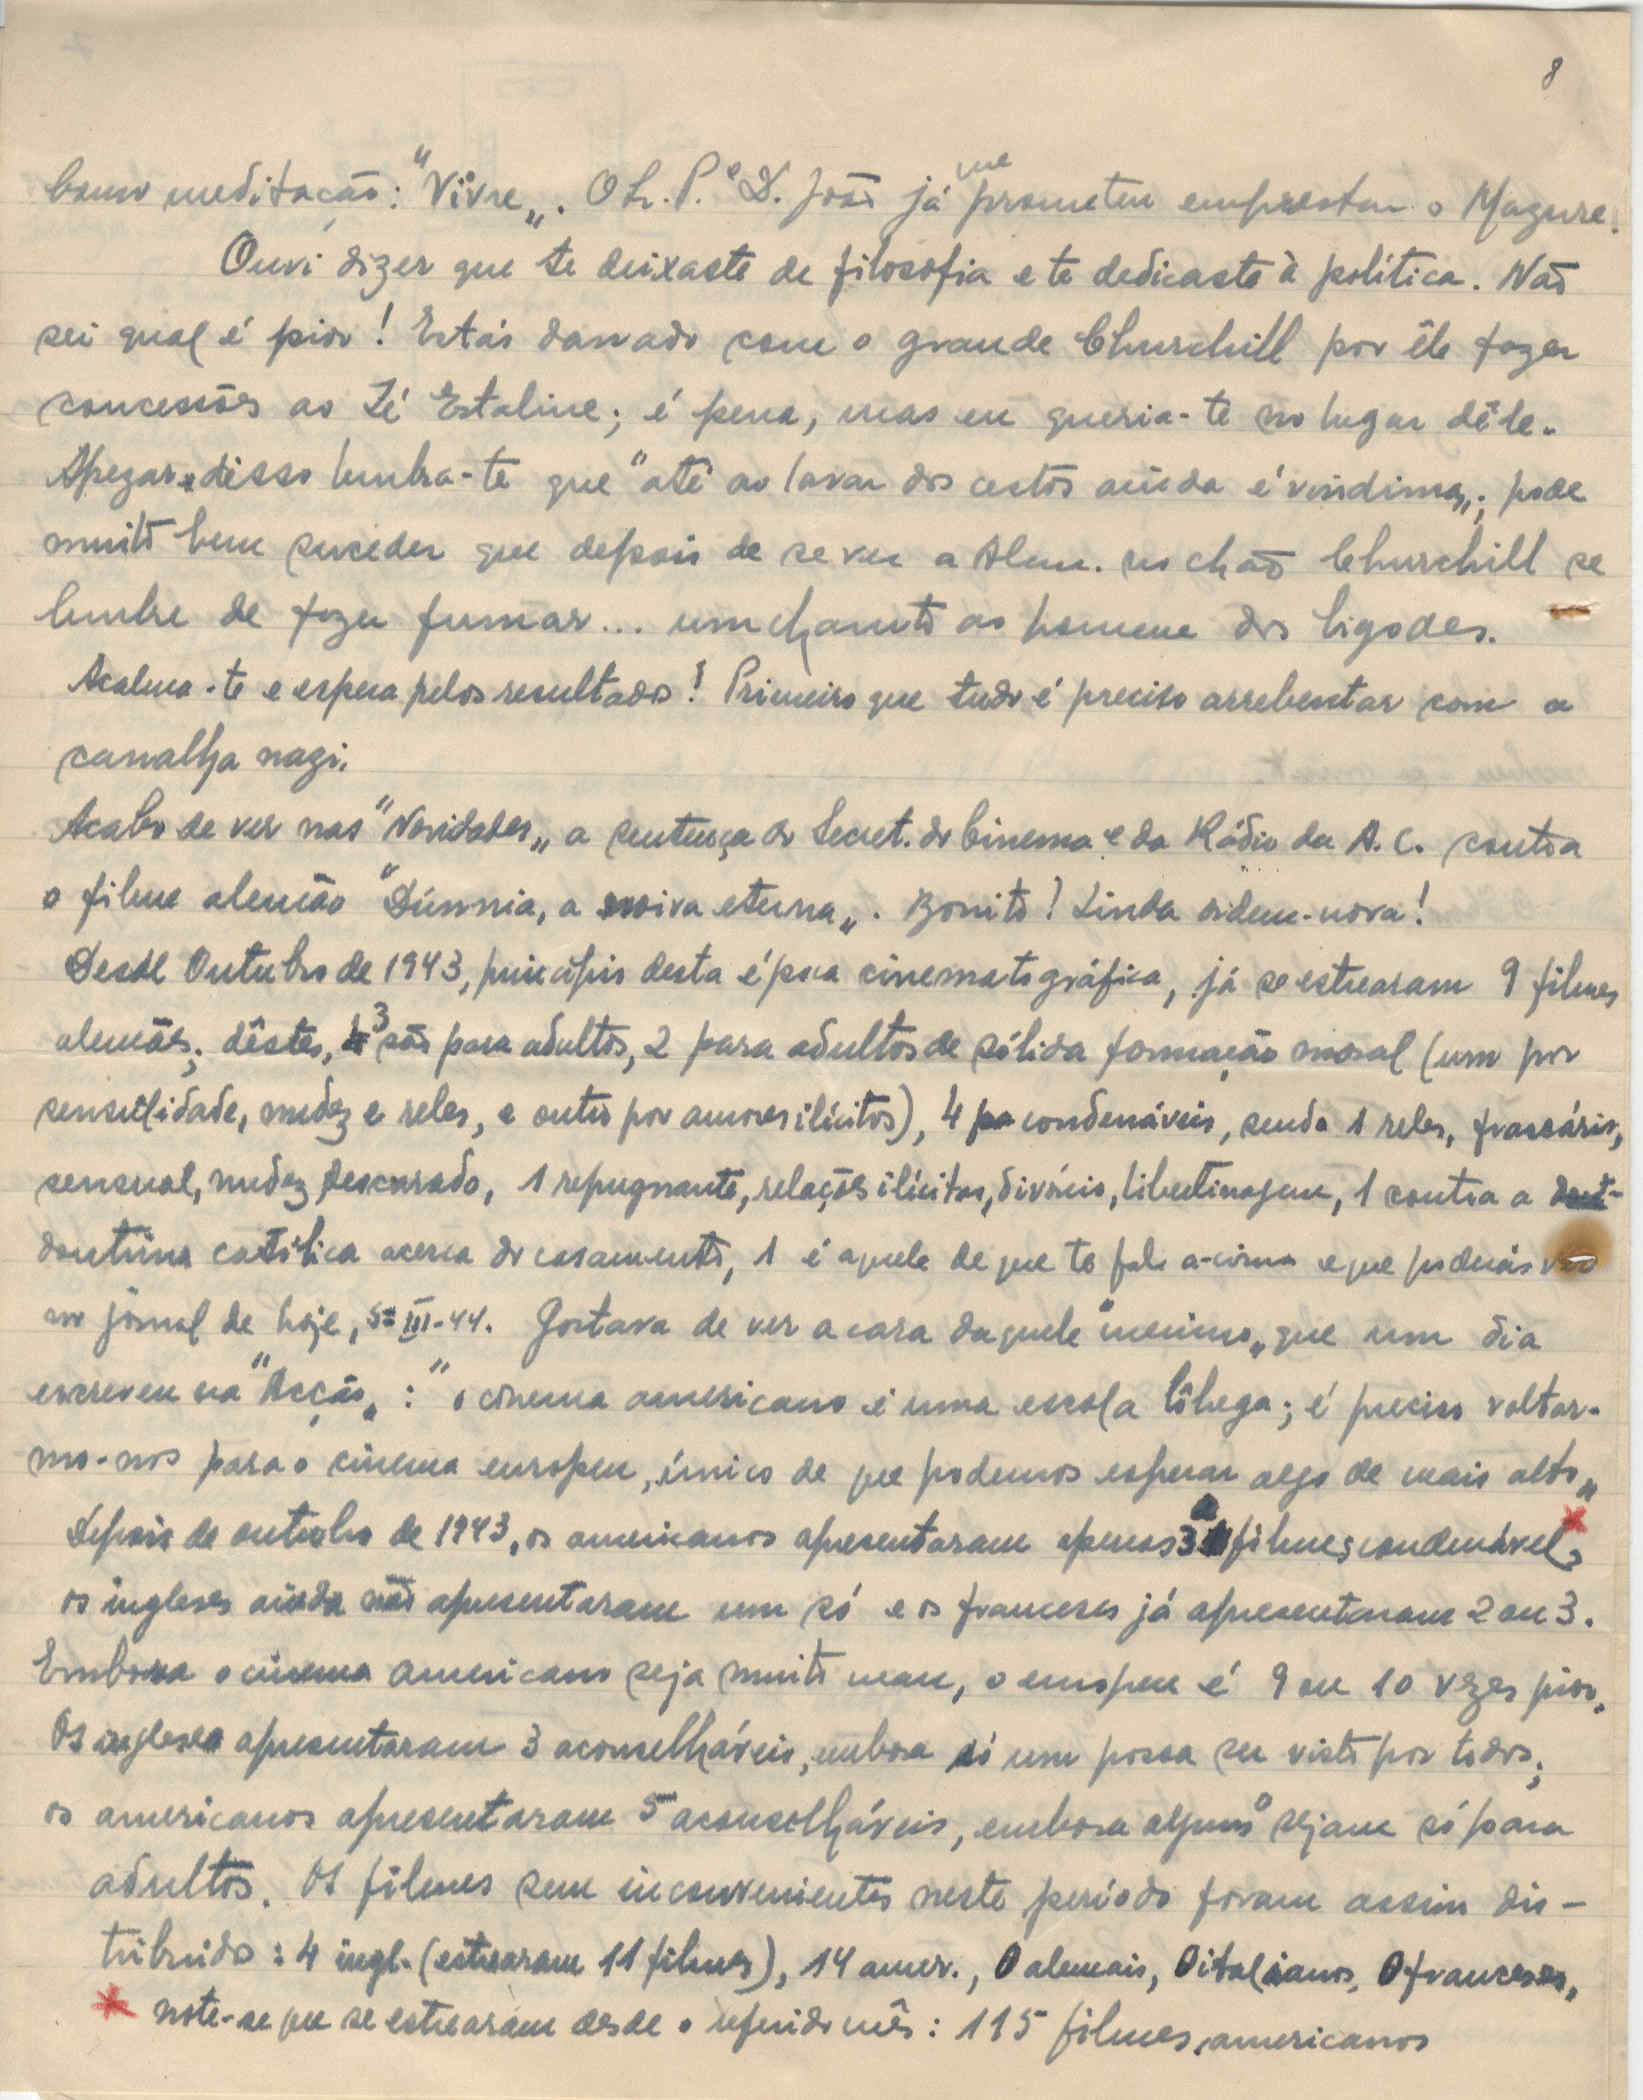 8
como meditação: "Vivre„. O h. P.e D. João já me prometeu emprestar o Magure.
Ouvi dizer que te deixaste de filosofia e te dedicaste à política. Não
sei qual é pior! Estás danado com o grande Churchill por êle fazer
concessões ao Zé Estaline; é pena, mas eu queria-te no lugar dêle.
Apezar disso lembra-te que "até ao lavar dos cestos ainda é vindima„; pode
muito bem suceder que depois de se ver a Alem. no chão Churchill se
lembre de fazer fumar... um charuto ao homem dos bigodes.
Acalma-te e espera pelos resultados! Primeiro que tudo é preciso arrebentar com a
canalha nazi.
Acabo de ver nas "Novidades„ a sentença do Secret. do Cinema e da Rádio da A. C. contra
o filme alemão "Dúnnia, a noiva eterna„. Bonito! Linda ordem-nova!
Desde Outubro de 1943, princípio desta época cinematográfica, já se estrearam 9 filmes
alemães; dêstes, 3 são para adultos, 2 para adultos de sólida formação moral (um por
sensulidade, nudez e reles, e outro por amores ilícitos), 4 condenáveis, sendo 1 reles, frascário,
sensual, nudez descarado, 1 repugnante, relações ilícitas, divórcio, libertinagem, 1 contra a dout-
doutrina católica acerca do casamento, 1 é aquele de que te falo a-cima e que poderás ver
no jornal de hoje, 5-III-44. Gostava de ver a cara daquele "menino„ que um dia
escreveu na "Acção„: "o cinema americano é uma escola lôbega; é preciso voltar-
mo-nos para o cinema europeu, único de que podemos esperar algo de mais alto„
Depois de outubro de 1943, os americanos apresentaram apenas 3 filmes condenáveis *
os ingleses ainda não apresentaram um só e os franceses já apresentaram 2 ou 3.
Embora o cinema americano seja muito mau, o europeu é 9 ou 10 vezes pior.
Os ingleses apresentaram 3 aconselháveis, embora só um possa ser visto por todos;
os americanos apresentaram 5 aconselháveis, embora alguns sejam só para
adultos. Os filmes sem inconvenientes neste período foram assim dis-
tribuidos: 4 ingl. (estrearam 11 filmes), 14 amer., 0 alemais, 0 italianos, 0 franceses.
* note-se que se estrearam desde o referido mês: 115 filmes americanos